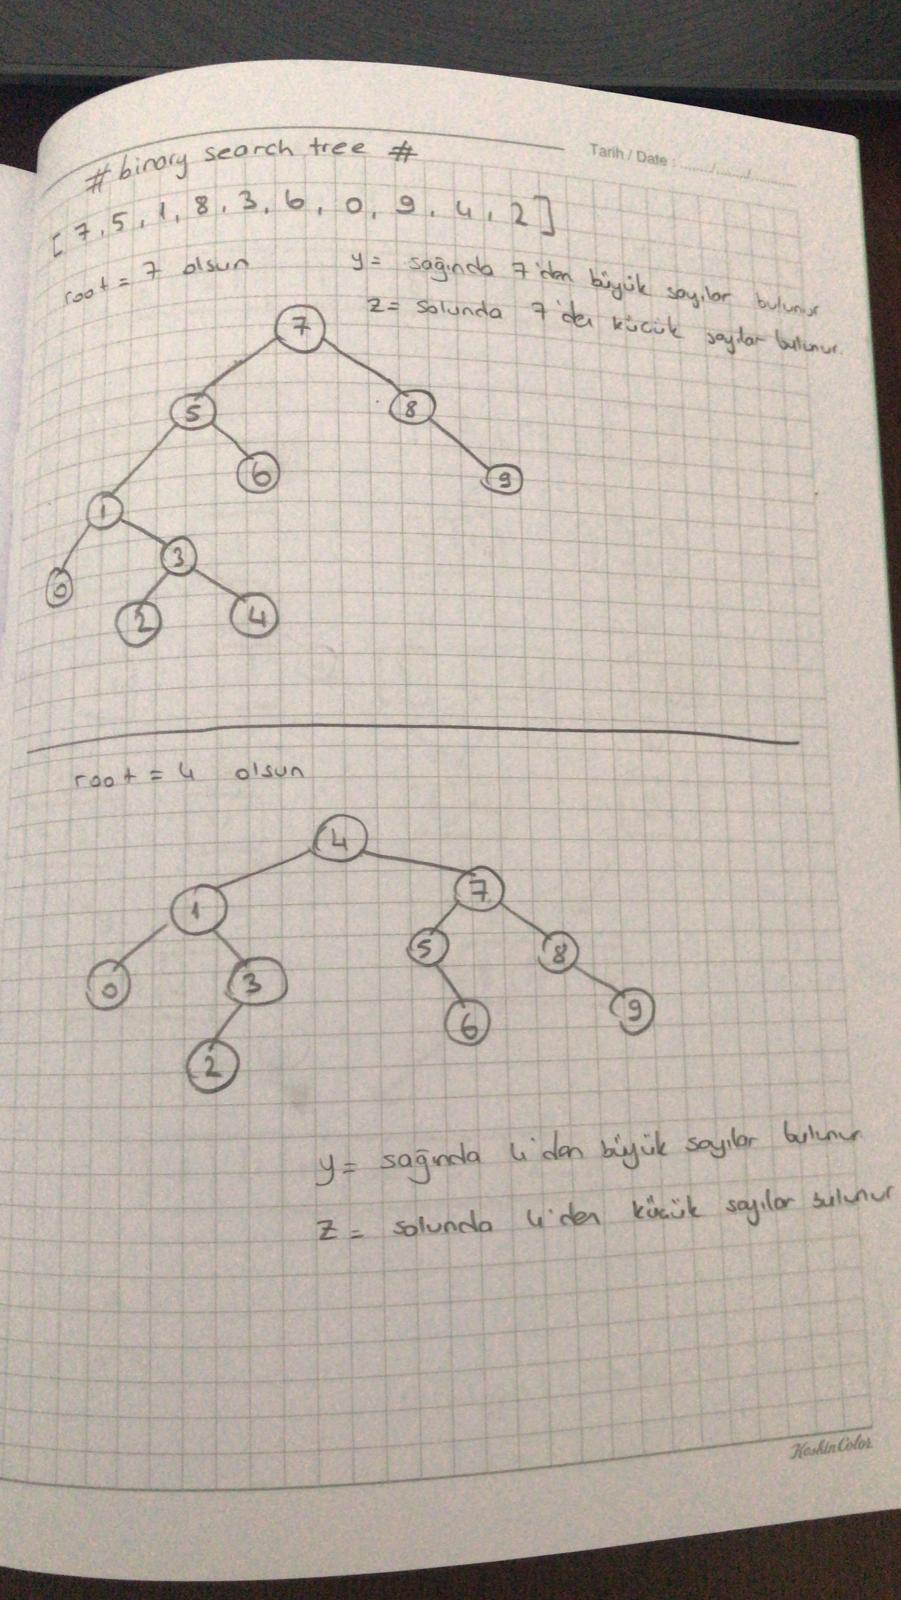 Tarih / Date : ....../....../............
# binary search tree #
[7, 5, 1, 8, 3, 6, 0, 9, 4, 2]
root = 7 olsun
y = sağında 7'den büyük sayılar bulunur
z = solunda 7'den küçük sayılar bulunur.
7
5 8
6 9
1
3
0
2 4
root = 4 olsun
4
1 7
5 8
0 3
6 9
2
y = sağında 4'den büyük sayılar bulunur
z = solunda 4'den küçük sayılar bulunur
KeskinColor